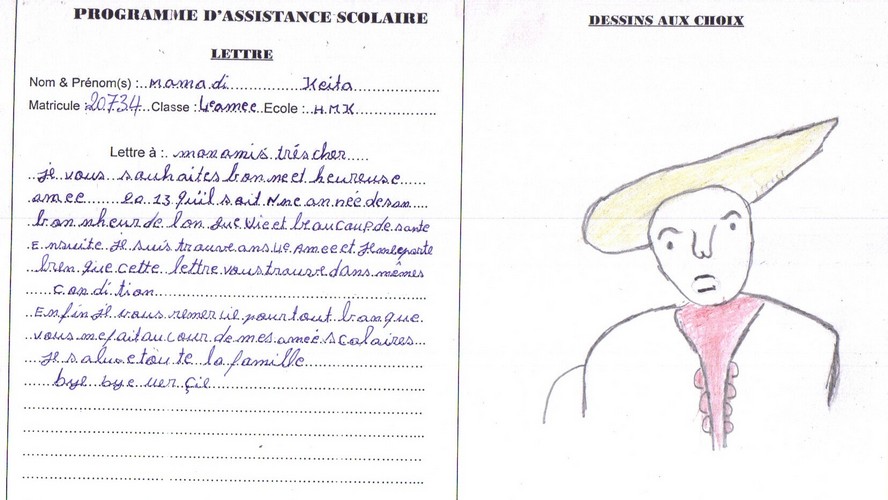 PROGRAMME D'ASSISTANCE SCOLAIRE
LETTRE
Nom & Prénom(s) : Mamadi Keita
Matricule : 20734 Classe : 4eamee Ecole : H.M.K
Lettre à : monamis trés cher
je vous souhaites bonneet heureuse
amee 2013 qu'il soit Nne année deson
bonnheur de lon gue Vie et beaucoup de sante
Ensuite je suis trouve ans 4e Ameeet jemeporte
bien que cette lettre vous trouve dans mêmes
condition
Enfin je vous remercie pour tout bonque
vous mefait au cour de mes ameé scolaires
je salue toute la famille
bye bye
DESSINS AUX CHOIX